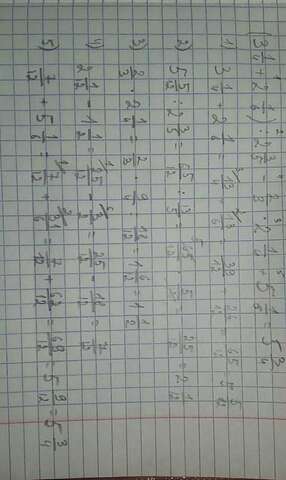 (3 1/4 + 2 1/6) : 2 3/5 - 2/3 · 2 1/4 + 5 1/6 = 5 3/4
1) 3 1/4 + 2 1/6 = 13/4 + 13/6 = 39/12 + 26/12 = 65/12 = 5 5/12
2) 5 5/12 : 2 3/5 = 65/12 : 13/5 = 65/12 · 5/13 = 25/12 = 2 1/12
3) 2/3 · 2 1/4 = 2/3 · 9/4 = 18/12 = 1 6/12 = 1 1/2
4) 2 1/12 - 1 1/2 = 25/12 - 3/2 = 25/12 - 18/12 = 7/12
5) 7/12 + 5 1/6 = 7/12 + 31/6 = 7/12 + 62/12 = 69/12 = 5 9/12 = 5 3/4